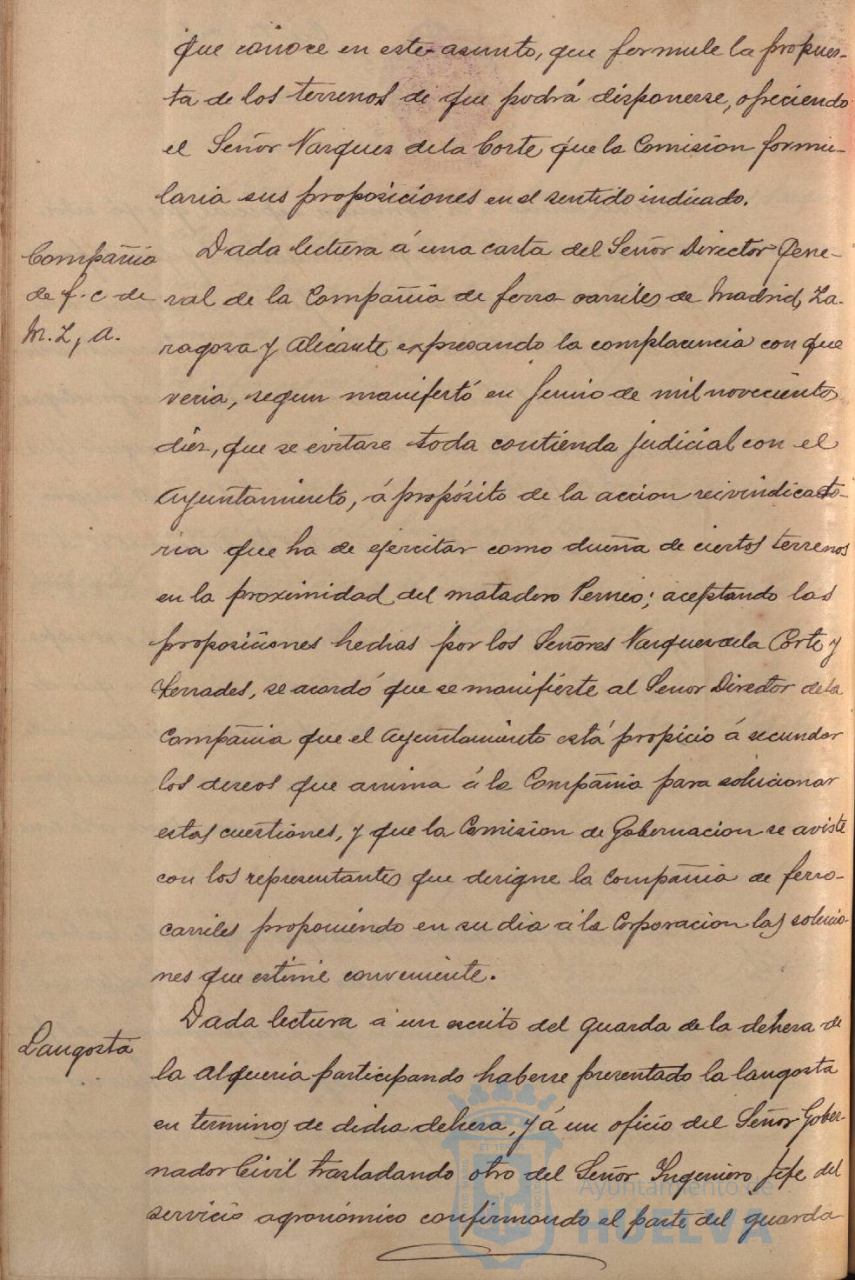 que conoce en este asunto, que formule la propues-
ta de los terrenos de que podrá disponerse, ofreciendo
el Señor Vazquez de la Corte, que la Comision formu-
laria sus proposiciones en el sentido indicado.
Compañia
de f. c de
M. Z, A.
Dada lectura á una carta del Señor Director Gene-
ral de la Compañia de ferro carriles de Madrid, Za-
ragoza y Alicante expresando la complacencia con que
veria, segun manifestó en Junio de mil novecientos
diez, que se evitase toda contienda judicial con el
Ayuntamiento, á propósito de la accion reivindicato-
ria que ha de ejercitar como dueña de ciertos terrenos
en la proximidad del matadero Perneo; aceptando las
proposiciones hechas por los Señores Vazquez de la Corte y
Terrades, se acordó que se manifieste al Señor Director de la
Compañia que el Ayuntamiento está propicio á secundar
los deseos que anima á la Compañia para solucionar
estas cuestiones, y que la Comision de Gobernacion se aviste
con los representantes que designe la Compañia de ferro-
carriles proponiendo en su dia á la Corporacion las solucio-
nes que estime conveniente.
Langosta
Dada lectura á un escrito del guarda de la dehesa de
la Alqueria participando haberse presentado la langosta
en terminos de dicha dehesa, y á un oficio del Señor Gober-
nador Civil trasladando otro del Señor Ingeniero Jefe del
servicio agronómico confirmando el parte del guarda
Ayuntamiento de
HUELVA